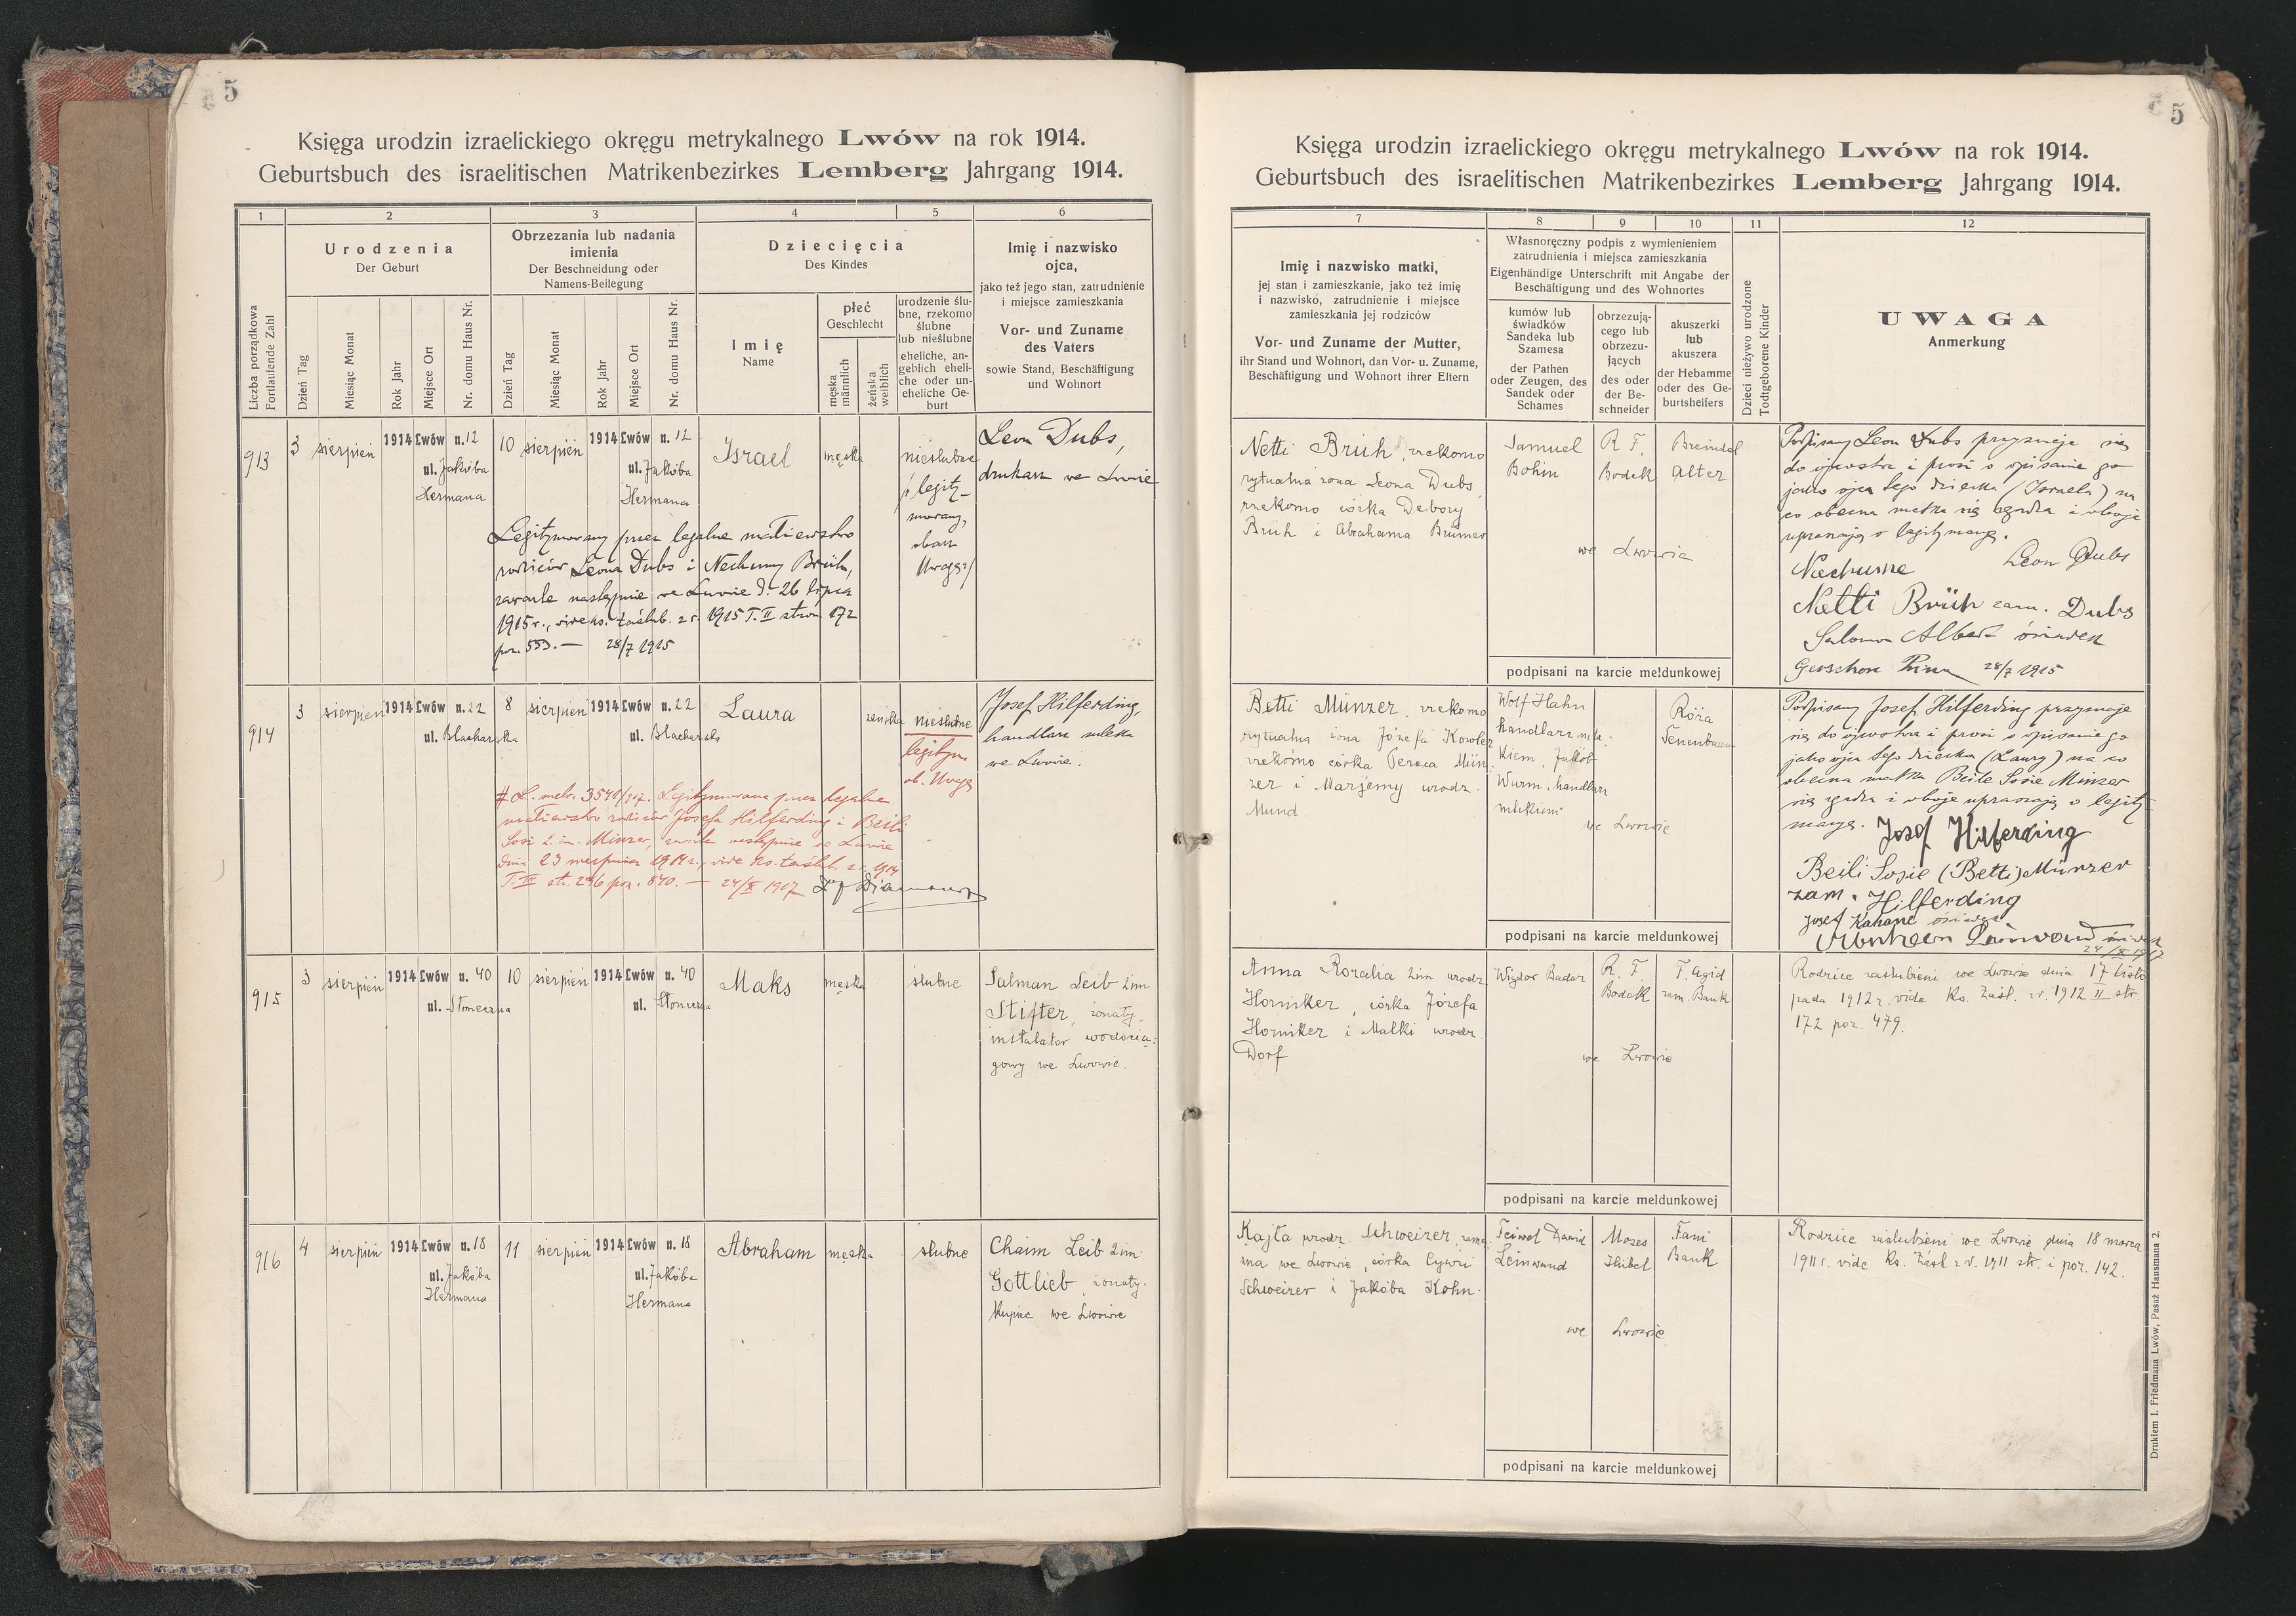 5
Księga urodzin izraelickiego okręgu metrykalnego Lwów na rok 1914.
Geburtsbuch des israelitischen Matrikenbezirkes Lemberg Jahrgang 1914.
1 2 3 4 5 6
Liczba porządkowa
Fortlaufende Zahl
Urodzenia
Der Geburt
Dzień Tag
Miesiąc Monat
Rok Jahr
Miejsce Ort
Nr. domu Haus Nr.
Obrzezania lub nadania
imienia
Der Beschneidung oder
Namens-Beilegung
Dzień Tag
Miesiąc Monat
Rok Jahr
Miejsce Ort
Nr. domu Haus Nr.
Dziecięcia
Des Kindes
Imię
Name
płeć
Geschlecht
męska
männlich
żeńska
weiblich
urodzenie ślu-
bne, rzekomo
ślubne
lub nieślubne
eheliche, an-
geblich eheli-
che oder un-
eheliche Ge-
burt
Imię i nazwisko
ojca,
jako też jego stan, zatrudnienie
i miejsce zamieszkania
Vor- und Zuname
des Vaters
sowie Stand, Beschäftigung
und Wohnort
913
3 sierpień 1914 Lwów n. 12
ul. Jakóba
Hermana
10 sierpień 1914 Lwów n. 12
ul. Jakóba
Hermana
Israel
męska
nieślubne
legity-
mowany,
Uwagę)
Leon Dubs,
drukarz we Lwowie
Legitymowany przez legalne małżeństwo
rodziców Leona Dubs i Nechumy Brüh,
zawarte następnie we Lwowie d. 26 lipca
1915 r., vide ks. zaślub. z r. 1915 T. II stron. 172
poz. 553. — 28/7 1915
914
3 sierpień 1914 Lwów n. 22
ul. Blacharska
8 sierpień 1914 Lwów n. 22
ul. Blacharska
Laura
żeńska
nieślubne
legitym.
ob. Uwagę
Josef Hilferding,
handlarz mleka
we Lwowie.
Legitymowana przez legalne
małżeństwo rodziców Josefa Hilferding i Beili
Sosi Münzer, następnie we Lwowie
dnia 23 sierpnia 1914 r., vide ks. zaślub. z r. 1914
T. III str. 236 poz. 840. — 24/X 1917
915
3 sierpień 1914 Lwów n. 40
ul. Słoneczna
10 sierpień 1914 Lwów n. 40
ul. Słoneczna
Maks
męska
ślubne
Salman Leib 2im
Stifter, żonaty,
instalator wodocią-
gowy we Lwowie.
916
4 sierpień 1914 Lwów n. 18
ul. Jakóba
Hermana
11 sierpień 1914 Lwów n. 18
ul. Jakóba
Hermana
Abraham
męska
ślubne
Chaim Leib 2im
Gottlieb, żonaty,
kupiec we Lwowie
5
Księga urodzin izraelickiego okręgu metrykalnego Lwów na rok 1914.
Geburtsbuch des israelitischen Matrikenbezirkes Lemberg Jahrgang 1914.
7 8 9 10 11 12
Imię i nazwisko matki,
jej stan i zamieszkanie, jako też imię
i nazwisko, zatrudnienie i miejsce
zamieszkania jej rodziców
Vor- und Zuname der Mutter,
ihr Stand und Wohnort, dan Vor- u. Zuname,
Beschäftigung und Wohnort ihrer Eltern
Własnoręczny podpis z wymienieniem
zatrudnienia i miejsca zamieszkania
Eigenhändige Unterschrift mit Angabe der
Beschäftigung und des Wohnortes
kumów lub
świadków
Sandeka lub
Szamesa
der Pathen
oder Zeugen, des
Sandek oder
Schames
obrzezują-
cego lub
obrzezu-
jących
des oder
der Be-
schneider
akuszerki
lub
akuszera
der Hebamme
oder des Ge-
burtshelfers
Dzieci nieżywo urodzone
Todtgeborene Kinder
UWAGA
Anmerkung
Netti Brüh, rzekomo
rytualna żona Leona Dubs,
rzekomo córka Debory
Brüh i Abrahama Brümer
Samuel
Bohm
R. F.
Bodek
Breindel
Alter
we Lwowie
podpisani na karcie meldunkowej
Podpisany Leon Dubs przyznaje się
do ojcostwa i prosi o wpisanie go
jako ojca tego dziecka (Israela) na
co obecna matka się zgadza i oboje
upraszają o legitymacyę.
Nechume Leon Dubs
Netti Brüh zam. Dubs
Salomon Albert świadek
Gerschon 28/7 1915
Betti Münzer, rzekomo
rytualna żona Józefa
rzekomo córka Pereca Mün-
zer i Marjemy urodz.
Mund.
Wolf Hahn
handlarz mle-
kiem, Jakób
Wurm, handlarz
mlekiem
Róża
Tenenbaum
we Lwowie
podpisani na karcie meldunkowej
Podpisany Josef Hilferding przyznaje
się do ojcostwa i prosi o wpisanie go
jako ojca tego dziecka (Laury) na co
obecna matka Beile Sosie Minzer
się zgadza i oboje upraszają o legity-
macyę. Josef Hilferding
Beili Sosie (Betti) Münzer
zam. Hilferding
Josef Kahane świadek
24/X 1917
Anna Rozalia 2im urodz.
Horniker, córka Józefa
Horniker i Malki urodz.
Dorf
Wigdor Bader
R. F.
Bodek
F. Agid
zam. Bank
we Lwowie
podpisani na karcie meldunkowej
Rodzice zaślubieni we Lwowie dnia 17 listo
pada 1912 r. vide ks. zaśl. z r. 1912 II str.
172 poz. 479.
Kajla urodz. Schweizer,
we Lwowie, córka Cywii
Schweizer i Jakóba Kohn.
Feiwel Dawid
Leinwand
Moses
Hübel
Fani
Bank
we Lwowie
podpisani na karcie meldunkowej
Rodzice zaślubieni we Lwowie dnia 18 marca
1911 r. vide ks. zaśl. z r. 1911 str. i poz. 142.
Drukiem I. Friedmana Lwów, Pasaż Hausmana 2.